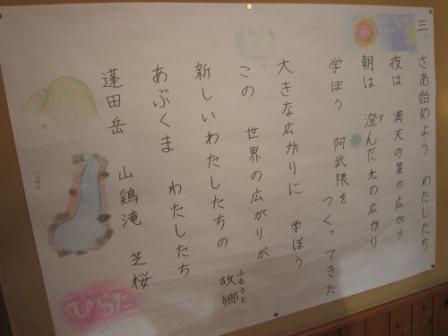 三、さあ始めよう わたしたち
夜は 満天の星の広がり
朝は 澄んだ光の広がり
学ぼう 阿武隈を つくってきた
大きな広がりに 学ぼう
この 世界の広がりが
新しいわたしたちの 故郷
ふるさと
あぶくま わたしたち
蓬田岳 山鶏滝 芝桜
ひらた